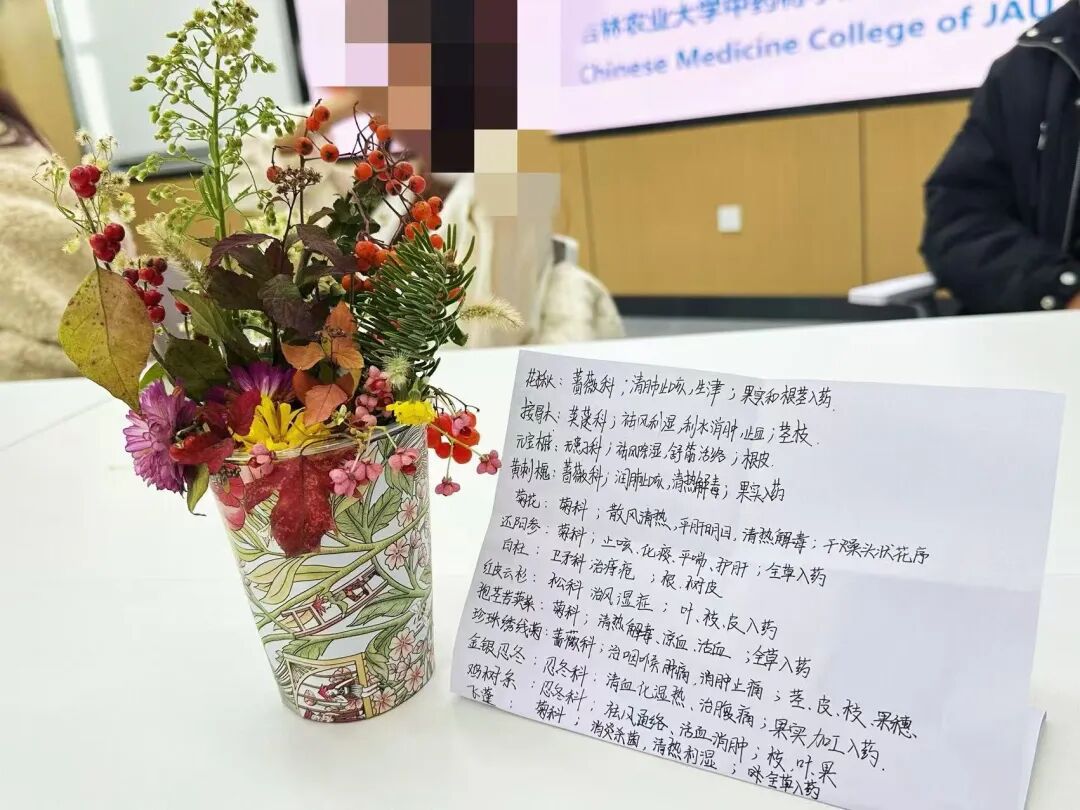 吉林农业大学中药材学
Chinese Medicine College of JAU
花楸：蔷薇科；清肺止咳，生津；果实和根茎入药．
接骨木：荚蒾科；祛风利湿，利水消肿，止血；茎枝．
元宝槭：无患子科；祛风除湿，舒筋活络；根皮．
黄刺槐：蔷薇科；润肺止咳，清热解毒；果实入药
菊花：菊科；散风清热，平肝明目，清热解毒；干燥头状花序
还阳参：菊科；止咳、化痰、平喘、护肝；全草入药
白杜：卫矛科 治痔疮；根、树皮
红皮云杉：松科 治风湿症；叶、枝、皮入药
抱茎苦荬菜：菊科；清热解毒、凉血、活血；全草入药
珍珠绣线菊：蔷薇科；治咽喉肿痛，消肿止痛；茎、皮、枝、果穗、
金银忍冬：忍冬科；清血化湿热、治腹痛；果实加工入药
鸡树条：忍冬科；祛风通络、活血消肿；枝、叶、果．
飞蓬：菊科；消炎杀菌，清热利湿；全草入药